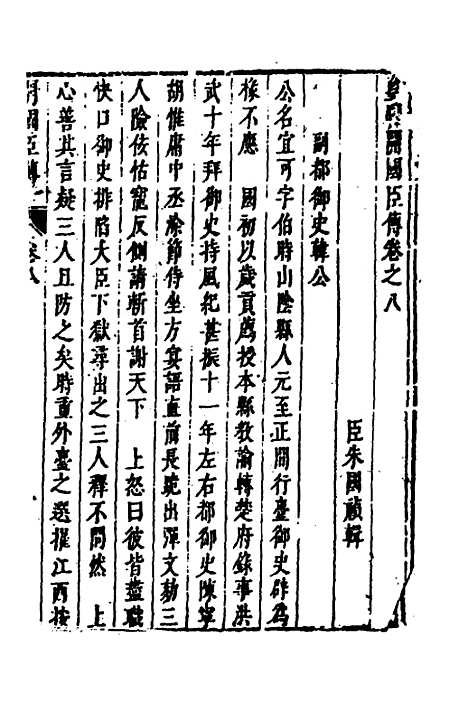 皇明開國臣傳卷之八
臣朱國禎輯
副都御史韓公
公名宜可字伯時山陰縣人元至正間行臺御史辟爲
椽不應　國初以歲貢薦授本縣教諭轉楚府錄事洪
武十年拜御史持風紀甚振十一年左右都御史陳寧
胡惟庸中丞涂節侍坐方宴語直前長跪出彈文劾三
人險佞怙寵反側請斬首謝天下　上怒曰彼皆藎職
快口御史排陷大臣下獄尋出之三人釋不問然　上
心善其言疑三人且防之矣時重外臺之選擢江西按
開國臣傳
卷八